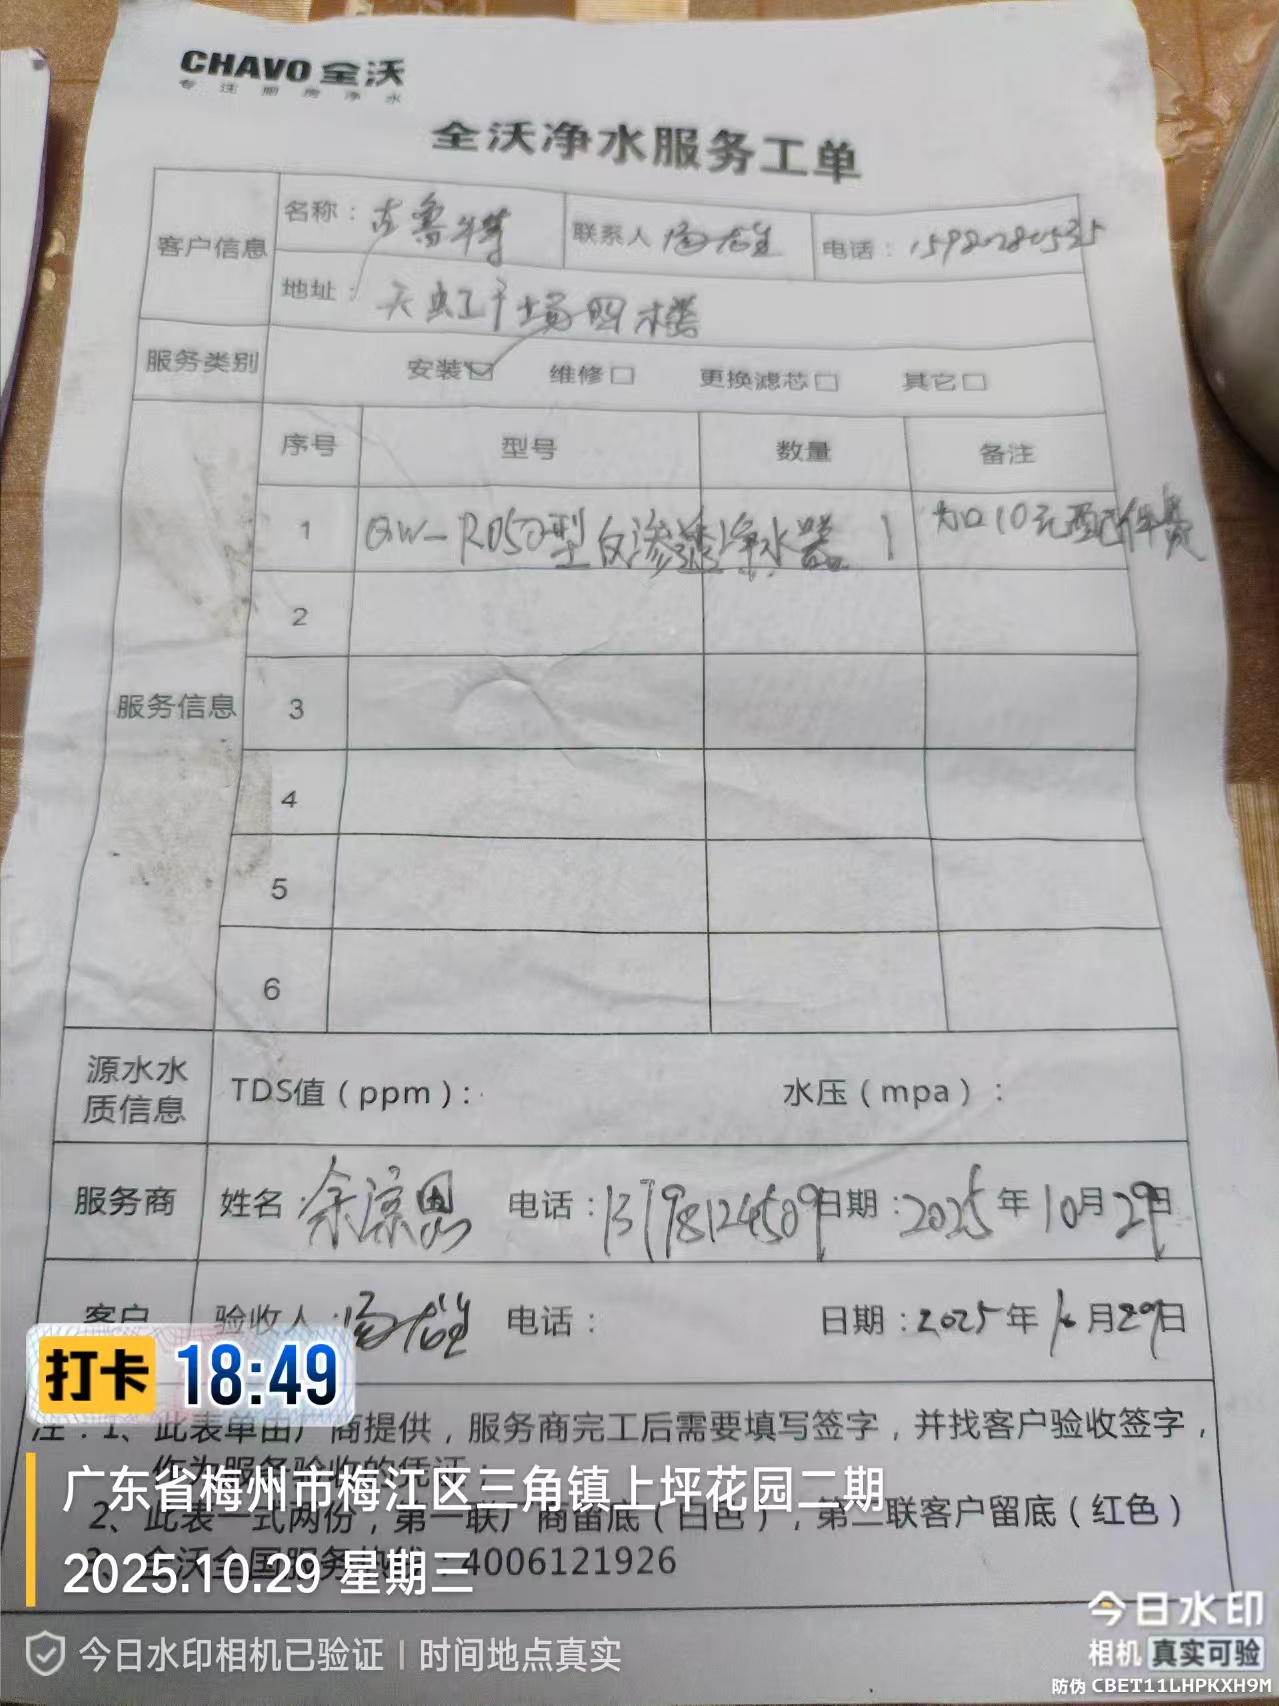 CHAVO 全沃
专注厨房净水
全沃净水服务工单
客户信息
名称：古鲁特
联系人
电话：
地址：天虹广场四楼
服务类别
安装☑ 维修□ 更换滤芯□ 其它□
服务信息
序号 型号 数量 备注
1 QW-R050型反渗透净水器 1 加10元配件费
2
3
4
5
6
源水水质信息
TDS值（ppm）： 水压（mpa）：
服务商 姓名：余 电话：13798124509 日期：2025年10月29日
客户 验收人： 电话： 日期：2025年10月29日
注：1、此表单由厂商提供，服务商完工后需要填写签字，并找客户验收签字，
作为服务验收的凭证；
2、此表一式两份，第一联厂商留底（白色），第二联客户留底（红色）
3、全沃全国服务热线：4006121926
打卡 18:49
广东省梅州市梅江区三角镇上坪花园二期
2025.10.29 星期三
今日水印相机已验证 | 时间地点真实
今日水印
相机 真实可验
防伪 CBET11LHPKXH9M